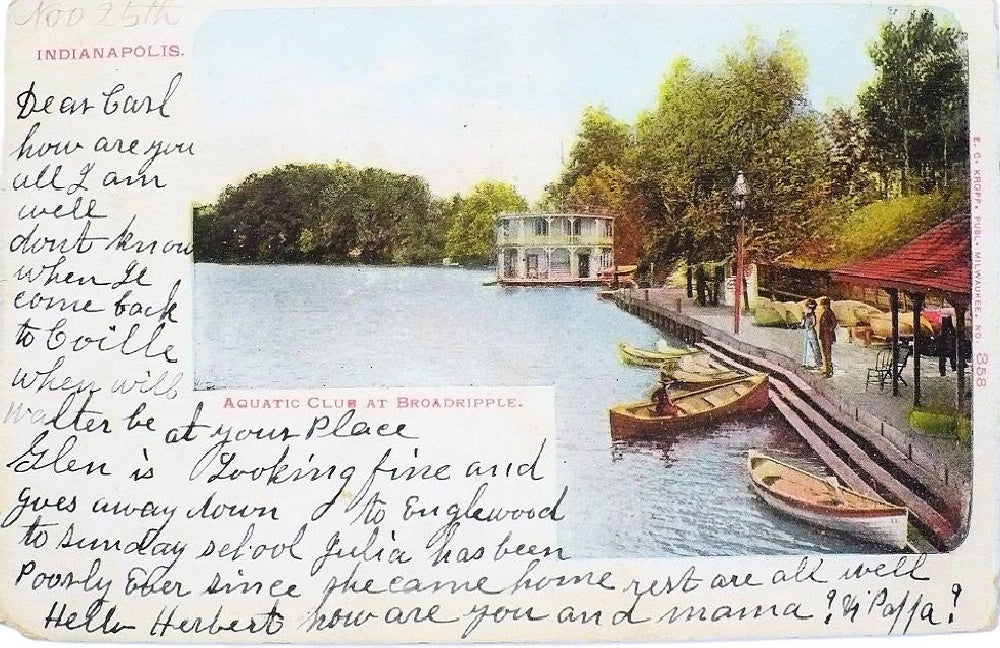 Nov 25th
INDIANAPOLIS.
Dear Carl
how are you
all I am
well
dont know
when Ile
come back
to Cville
when will
walter be at your Place
AQUATIC CLUB AT BROADRIPPLE.
Glen is Looking fine and
goes away down to Englewood
to sunday school Julia has been
Poorly Ever since she came home rest are all well
Hello Herbert how are you and mama? & Pappa?
E. C. KROPP, PUBL. MILWAUKEE. NO. 358